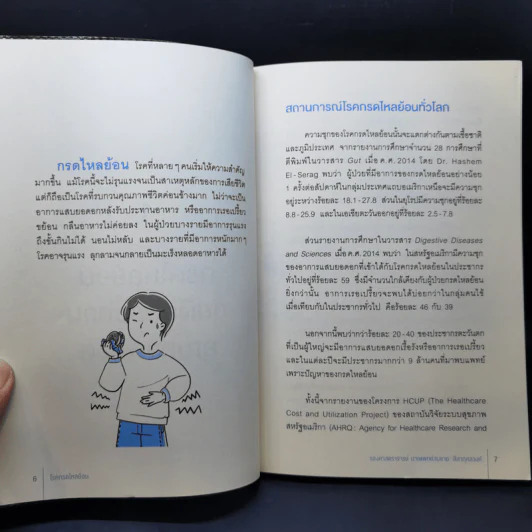 กรดไหลย้อน โรคที่หลายๆ คนเริ่มให้ความสำคัญ
มากขึ้น แม้โรคนี้จะไม่รุนแรงจนเป็นสาเหตุหลักของการเสียชีวิต
แต่ก็ถือเป็นโรคที่รบกวนคุณภาพชีวิตค่อนข้างมาก ไม่ว่าจะเป็น
อาการแสบยอดอกหลังรับประทานอาหาร หรืออาการเรอเปรี้ยว
ขย้อน กลืนอาหารไม่ค่อยลง ในผู้ป่วยบางรายมีอาการรุนแรง
ถึงขั้นกินไม่ได้ นอนไม่หลับ และบางรายที่มีอาการหนักมากๆ
โรคอาจรุนแรง ลุกลามจนกลายเป็นมะเร็งหลอดอาหารได้
6 โรคกรดไหลย้อน
สถานการณ์โรคกรดไหลย้อนทั่วโลก
ความชุกของโรคกรดไหลย้อนนั้นจะแตกต่างกันตามเชื้อชาติ
และภูมิประเทศ จากรายงานการศึกษาจำนวน 28 การศึกษาที่
ตีพิมพ์ในวารสาร Gut เมื่อ ค.ศ. 2014 โดย Dr. Hashem
El-Serag พบว่า ผู้ป่วยที่มีอาการของกรดไหลย้อนอย่างน้อย
1 ครั้งต่อสัปดาห์ในกลุ่มประเทศแถบอเมริกาเหนือจะมีความชุก
อยู่ระหว่างร้อยละ 18.1-27.8 ส่วนในยุโรปมีความชุกอยู่ที่ร้อยละ
8.8-25.9 และในเอเชียตะวันออกอยู่ที่ร้อยละ 2.5-7.8
ส่วนรายงานการศึกษาในวารสาร Digestive Diseases
and Sciences เมื่อ ค.ศ. 2014 พบว่า ในสหรัฐอเมริกามีความชุก
ของอาการแสบยอดอกที่เข้าได้กับโรคกรดไหลย้อนในประชากร
ทั่วไปอยู่ที่ร้อยละ 59 ซึ่งมีจำนวนใกล้เคียงกับผู้ป่วยกรดไหลย้อน
ยิ่งกว่านั้น อาการเรอเปรี้ยวจะพบได้บ่อยกว่าในกลุ่มคนใช้
เมื่อเทียบกับในประชากรทั่วไป คือร้อยละ 46 กับ 39
นอกจากนี้พบว่ากว่าร้อยละ 20-40 ของประชากรตะวันตก
ที่เป็นผู้ใหญ่จะมีอาการแสบยอดอกเรื้อรังหรืออาการเรอเปรี้ยว
และในแต่ละปีจะมีประชากรมากกว่า 9 ล้านคนที่มาพบแพทย์
เพราะปัญหาของกรดไหลย้อน
ทั้งนี้จากรายงานของโครงการ HCUP (The Healthcare
Cost and Utilization Project) ของสถาบันวิจัยระบบสุขภาพ
สหรัฐอเมริกา (AHRQ: Agency for Healthcare Research and
รองศาสตราจารย์ นายแพทย์ 7